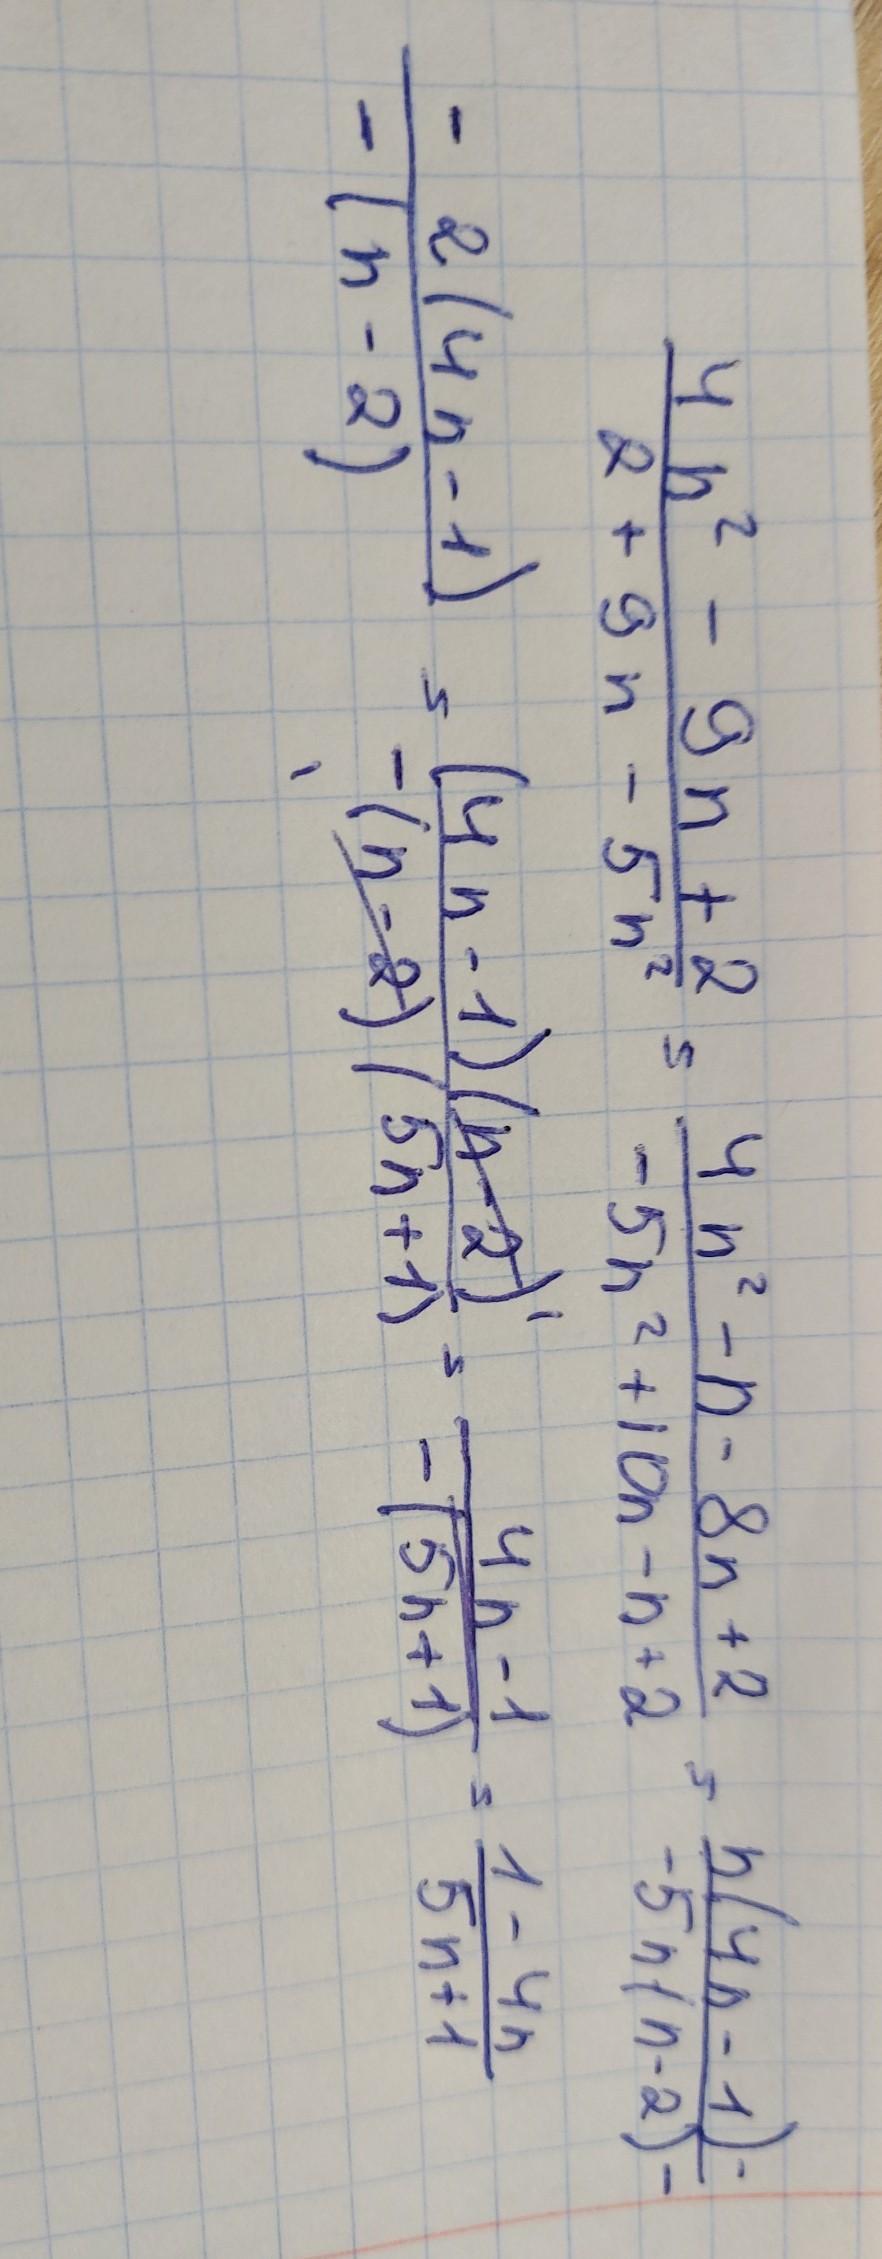 \frac{4n² - 9n + 2}{2 + 9n - 5n²} = \frac{4n² - n - 8n + 2}{-5n² + 10n - n + 2} = \frac{n(4n - 1) -}{-5n(n - 2) -}
\frac{- 2(4n - 1)}{- (n - 2)} = \frac{(4n - 1)(n - 2)}{-(n - 2)(5n + 1)} = \frac{4n - 1}{-(5n + 1)} = \frac{1 - 4n}{5n + 1}